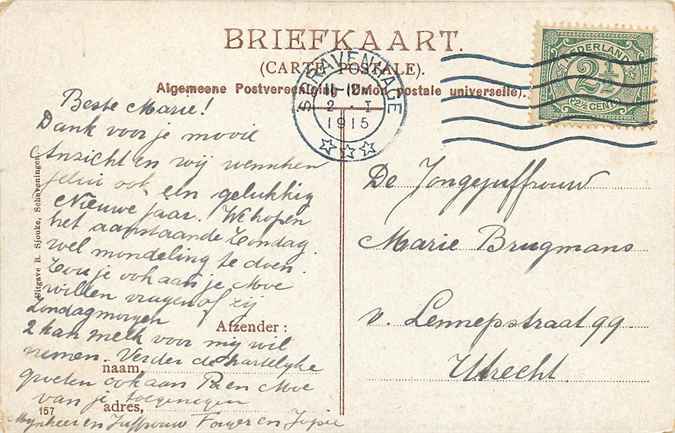 BRIEFKAART.
(CARTE POSTALE).
Algemeene Postvereeniging (Union postale universelle).
'S GRAVENHAGE
11-12
2 · I
1915
NEDERLAND
2½
2½ CENT
Beste Marie!
Dank voor je mooie
Anzicht en wij wenschen
jelui ook een gelukkig
Nieuwe jaar. We hopen
het aanstaande Zondag
wel mondeling te doen.
Zou je ook aan je Moe
willen vragen of zij
Zondagmorgen
2 kan melk voor mij wil
nemen. Verder de hartelijke
groeten ook aan Pa en Moe
van je toegenegen
Mijnheer en Juffrouw en
De Jongejuffrouw
Marie Brugmans
v. Lennepstraat 99
Utrecht.
Afzender:
naam,
adres,
157
Uitgave B. Sjouke, Scheveningen